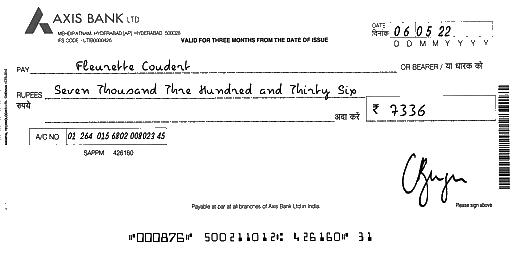 AXIS BANK LTD
MEHDIPATNAM, HYDERABAD [AP] HYDERABAD 500028
IFS CODE - UTIB0000426
VALID FOR THREE MONTHS FROM THE DATE OF ISSUE
DATE
दिनांक 06 05 22
D D M M Y Y Y Y
PAY Fleurette Coudert OR BEARER / या धारक को
RUPEES Seven Thousand Thre Hundred and Thirty Six
रुपये अदा करें ₹ 7336
A/C NO 01 264 015 6802 008023 45
SAPPM 426160
Payable at par at all branches of Axis Bank Ltd in India.
Please sign above
"000876" 500211012: 426160" 31